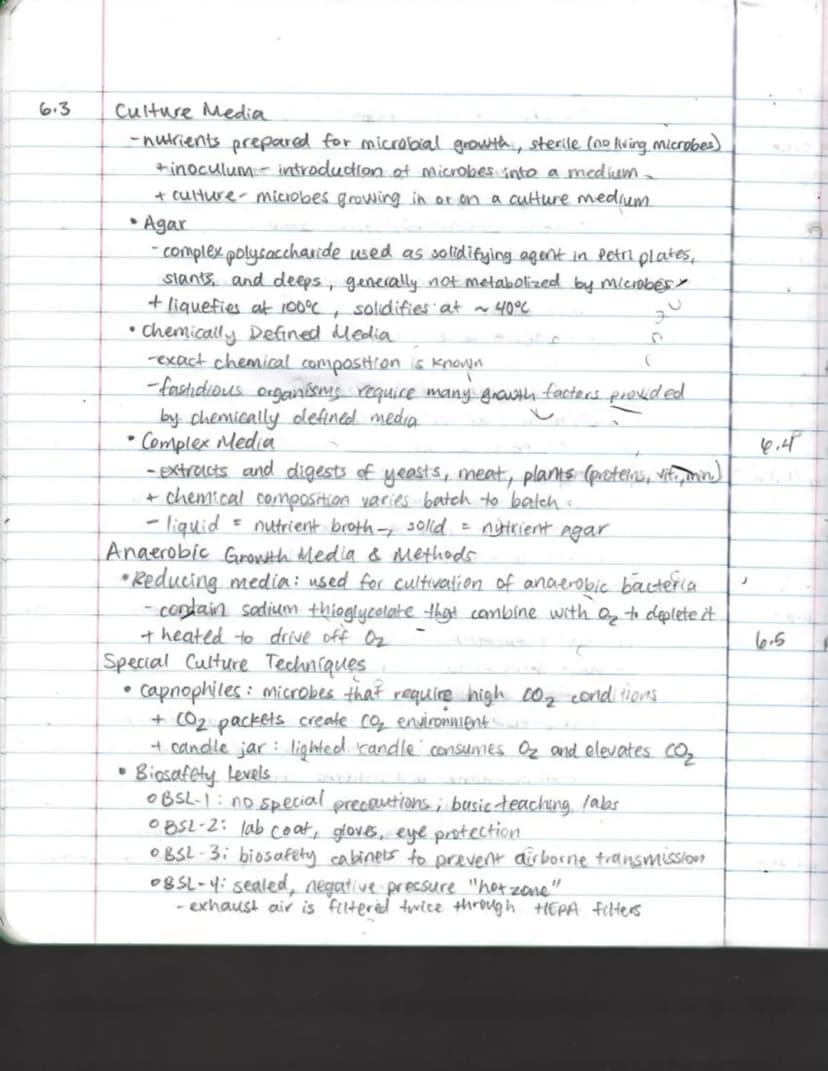 6.3 Culture Media
- nutrients prepared for microbial growth, sterile (no living microbes)
+ inoculum - introduction of microbes into a medium
+ culture - microbes growing in or on a culture medium
• Agar
- complex polysaccharide used as solidifying agent in Petri plates,
slants, and deeps, generally not metabolized by microbes
+ liquefies at 100°C, solidifies at ~40°C
• Chemically Defined Media
- exact chemical composition is known
- fastidious organisms require many growth factors provided
by chemically defined media
• Complex Media
6.4
- extracts and digests of yeasts, meat, plants (proteins, vit., min.)
+ chemical composition varies batch to batch
- liquid = nutrient broth, solid = nutrient agar
Anaerobic Growth Media & Methods
• Reducing media: used for cultivation of anaerobic bacteria
- contain sodium thioglycolate that combine with O₂ to deplete it
+ heated to drive off O₂
6.5
Special Culture Techniques
• capnophiles: microbes that require high CO₂ conditions
+ CO₂ packets create CO₂ environment
+ candle jar: lighted candle consumes O₂ and elevates CO₂
• Biosafety Levels
o BSL-1: no special precautions; basic teaching labs
o BSL-2: lab coat, gloves, eye protection
o BSL-3: biosafety cabinets to prevent airborne transmission
o BSL-4: sealed, negative pressure "hot zone"
- exhaust air is filtered twice through HEPA filters